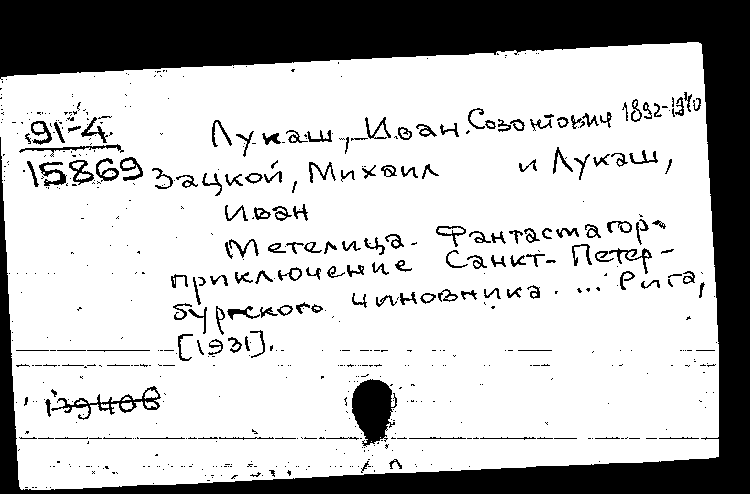 91-4
15869
Лукаш, Иван Созонтович 1892-1940
Зацкой, Михаил и Лукаш,
Иван
Метелица. Фантастагор-
приключение Санкт-Петер-
бургского чиновника. ... Рига,
[1931].
139406